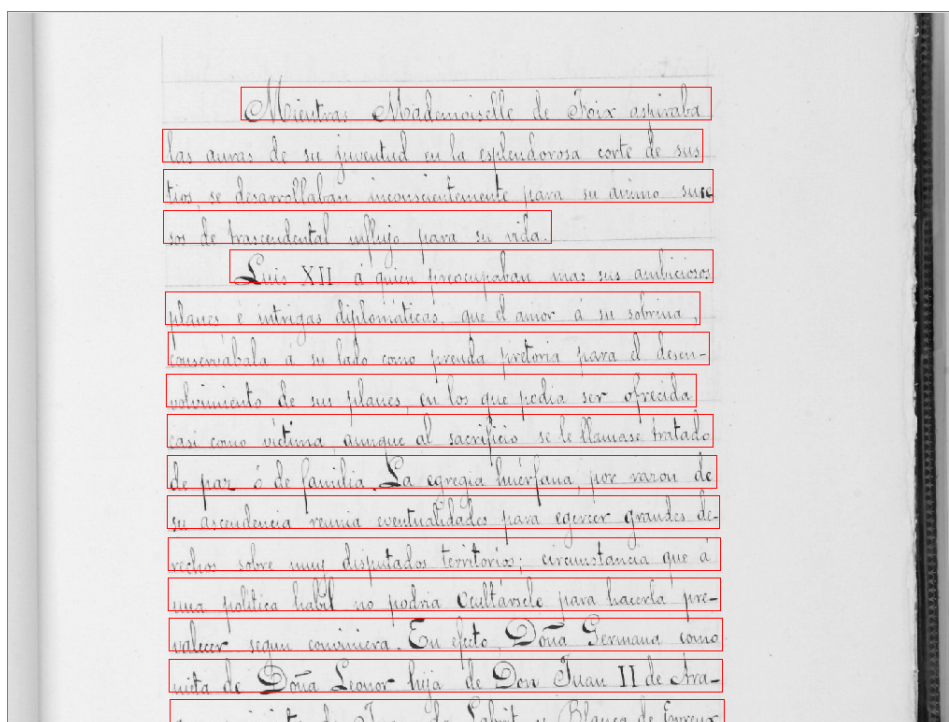 Mientras Mademoiselle de Foix aspiraba
las auras de su juventud en la esplendorosa corte de sus
tios, se desarrollaban inconscientemente para su ánimo suce
sos de trascendental influjo para su vida.
Luis XII á quien preocupaban mas sus ambiciosos
planes é intrigas diplomáticas, que el amor á su sobrina,
conservábala á su lado como prenda pretoria para el desen-
volvimiento de sus planes, en los que podia ser ofrecida
casi como víctima aunque al sacrificio se le llamase tratado
de paz ó de familia. La egregia huérfana, por razon de
su ascendencia reunia eventualidades para egercer grandes de-
rechos sobre muy disputados territorios; circunstancia que á
una política habil no podria ocultársele para hacerla pre-
valecer segun conviniera. En efecto, Doña Germana como
nieta de Doña Leonor hija de Don Juan II de Ara-
de Labrit y Blanca de Evreux